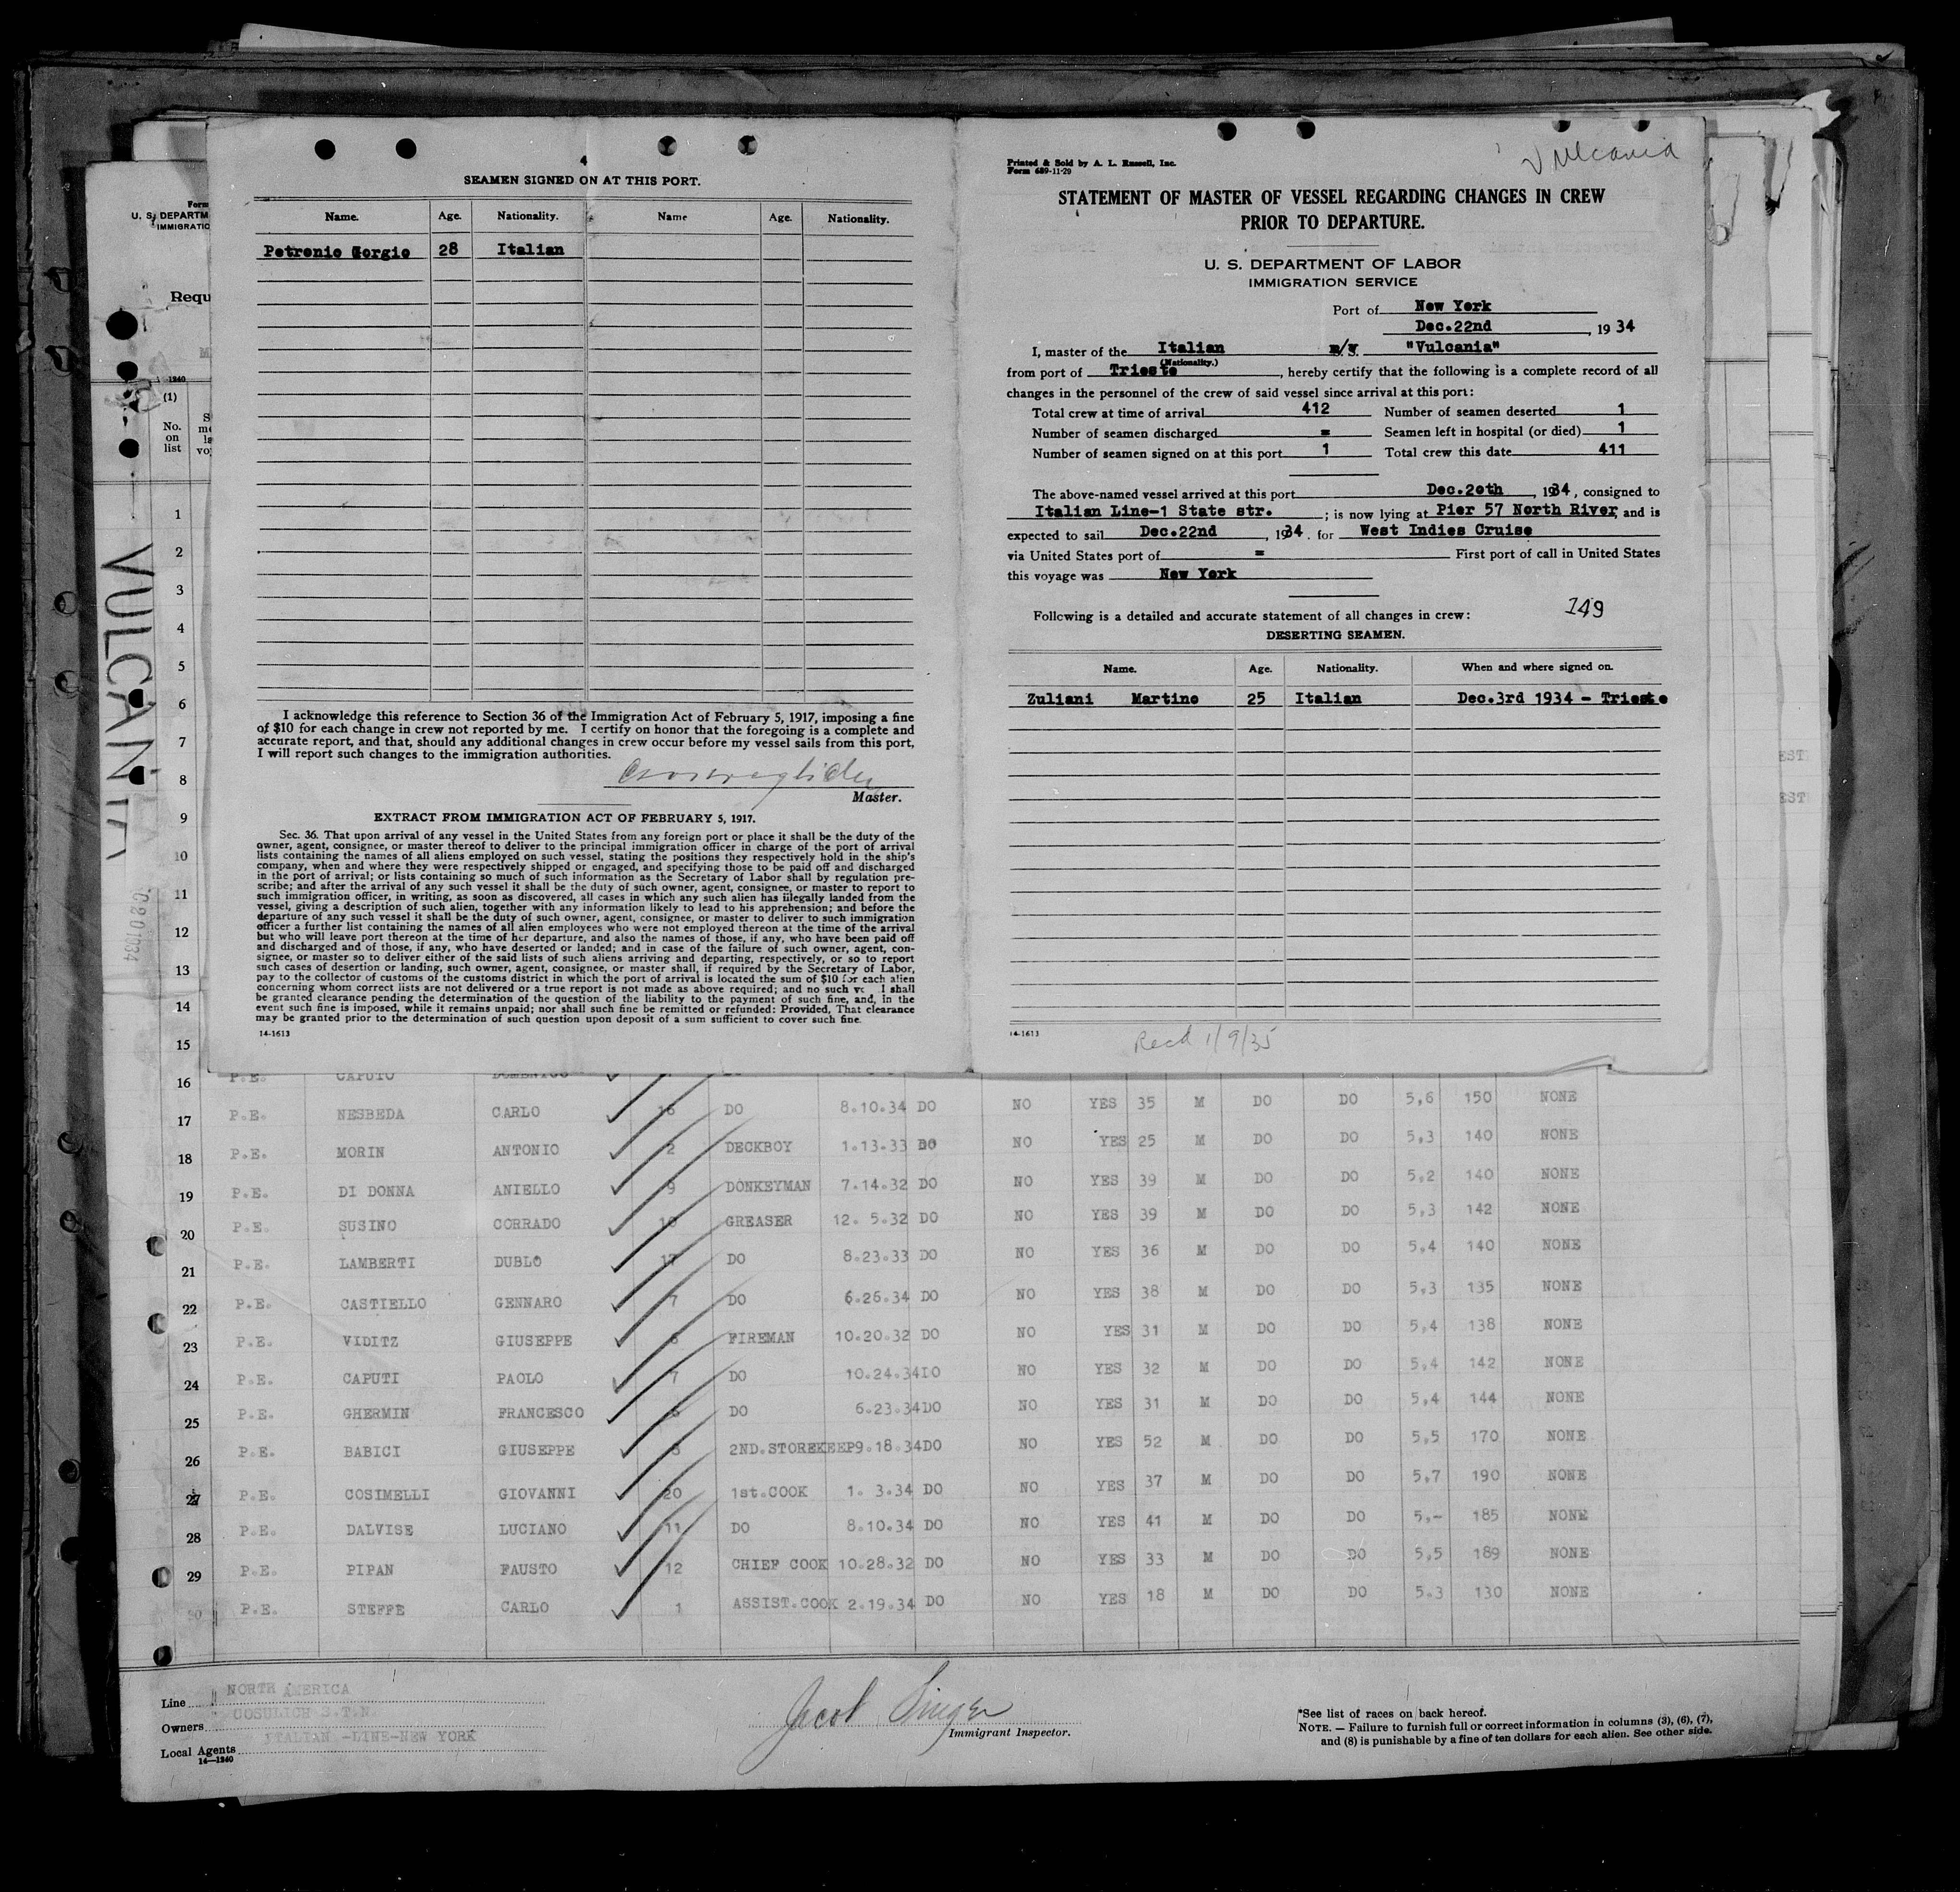 4
SEAMEN SIGNED ON AT THIS PORT.
Name. Age. Nationality. Name Age. Nationality.
Petronio Gorgio 28 Italian
I acknowledge this reference to Section 36 of the Immigration Act of February 5, 1917, imposing a fine
of $10 for each change in crew not reported by me. I certify on honor that the foregoing is a complete and
accurate report, and that, should any additional changes in crew occur before my vessel sails from this port,
I will report such changes to the immigration authorities.
Master.
EXTRACT FROM IMMIGRATION ACT OF FEBRUARY 5, 1917.
Sec. 36. That upon arrival of any vessel in the United States from any foreign port or place it shall be the duty of the
owner, agent, consignee, or master thereof to deliver to the principal immigration officer in charge of the port of arrival
lists containing the names of all aliens employed on such vessel, stating the positions they respectively hold in the ship's
company, when and where they were respectively shipped or engaged, and specifying those to be paid off and discharged
in the port of arrival; or lists containing so much of such information as the Secretary of Labor shall by regulation pre-
scribe; and after the arrival of any such vessel it shall be the duty of such owner, agent, consignee, or master to report to
such immigration officer, in writing, as soon as discovered, all cases in which any such alien has illegally landed from the
vessel, giving a description of such alien, together with any information likely to lead to his apprehension; and before the
departure of any such vessel it shall be the duty of such owner, agent, consignee, or master to deliver to such immigration
officer a further list containing the names of all alien employees who were not employed thereon at the time of the arrival
but who will leave port thereon at the time of her departure, and also the names of those, if any, who have been paid off
and discharged and of those, if any, who have deserted or landed; and in case of the failure of such owner, agent, con-
signee, or master so to deliver either of the said lists of such aliens arriving and departing, respectively, or so to report
such cases of desertion or landing, such owner, agent, consignee, or master shall, if required by the Secretary of Labor,
pay to the collector of customs of the customs district in which the port of arrival is located the sum of $10 for each alien
concerning whom correct lists are not delivered or a true report is not made as above required; and no such ve l shall
be granted clearance pending the determination of the question of the liability to the payment of such fine, and, in the
event such fine is imposed, while it remains unpaid; nor shall such fine be remitted or refunded: Provided, That clearance
may be granted prior to the determination of such question upon deposit of a sum sufficient to cover such fine.
14-1613
Vulcania
Printed & Sold by A. L. Russell, Inc.
Form 689-11-29
STATEMENT OF MASTER OF VESSEL REGARDING CHANGES IN CREW
PRIOR TO DEPARTURE.
U. S. DEPARTMENT OF LABOR
IMMIGRATION SERVICE
Port of New York
Dec.22nd , 19 34
I, master of the Italian m/v. "Vulcania"
(Nationality.)
from port of Trieste , hereby certify that the following is a complete record of all
changes in the personnel of the crew of said vessel since arrival at this port:
Total crew at time of arrival 412 Number of seamen deserted 1
Number of seamen discharged = Seamen left in hospital (or died) 1
Number of seamen signed on at this port 1 Total crew this date 411
The above-named vessel arrived at this port Dec.20th , 1934, consigned to
Italian Line-1 State str. ; is now lying at Pier 57 North River, and is
expected to sail Dec.22nd , 1934. for West Indies Cruise
via United States port of = First port of call in United States
this voyage was New York
149
Following is a detailed and accurate statement of all changes in crew:
DESERTING SEAMEN.
Name. Age. Nationality. When and where signed on.
Zuliani Martino 25 Italian Dec.3rd 1934 - Trieste
14-1613
Recd 1/9/35
Form
U. S. DEPARTM
IMMIGRATIO
Requ
1240
(1)
No.
on
list
VULCANIA
1
2
3
4
5
6
7
8
9
10
11
12
13
14
15
16 P.E. CAPUTO DOMENICO
17 P.E. NESBEDA CARLO 16 DO 8.10.34 DO NO YES 35 M DO DO 5,6 150 NONE
18 P.E. MORIN ANTONIO 2 DECKBOY 1.13.33 DO NO YES 25 M DO DO 5,3 140 NONE
19 P.E. DI DONNA ANIELLO 9 DONKEYMAN 7.14.32 DO NO YES 39 M DO DO 5,2 140 NONE
20 P.E. SUSINO CORRADO 10 GREASER 12. 5.32 DO NO YES 39 M DO DO 5,3 142 NONE
21 P.E. LAMBERTI DUBLO 17 DO 8.23.33 DO NO YES 36 M DO DO 5,4 140 NONE
22 P.E. CASTIELLO GENNARO 7 DO 6.26.34 DO NO YES 38 M DO DO 5,3 135 NONE
23 P.E. VIDITZ GIUSEPPE 6 FIREMAN 10.20.32 DO NO YES 31 M DO DO 5,4 138 NONE
24 P.E. CAPUTI PAOLO 7 DO 10.24.34DO NO YES 32 M DO DO 5,4 142 NONE
25 P.E. GHERMIN FRANCESCO DO 6.23.34DO NO YES 31 M DO DO 5,4 144 NONE
26 P.E. BABICI GIUSEPPE 2ND.STOREKEEP9.18.34DO NO YES 52 M DO DO 5,5 170 NONE
27 P.E. COSIMELLI GIOVANNI 20 1st.COOK 1. 3.34 DO NO YES 37 M DO DO 5,7 190 NONE
28 P.E. DALVISE LUCIANO 11 DO 8.10.34 DO NO YES 41 M DO DO 5,- 185 NONE
29 P.E. PIPAN FAUSTO 12 CHIEF COOK 10.28.32 DO NO YES 33 M DO DO 5,5 189 NONE
30 P.E. STEFFE CARLO 1 ASSIST.COOK 2.19.34 DO NO YES 18 M DO DO 5.3 130 NONE
Line NORTH AMERICA
Owners COSULICH S.T.N.
Local Agents ITALIAN -LINE-NEW YORK
14—1240
Jacob Singer
Immigrant Inspector.
*See list of races on back hereof.
NOTE. — Failure to furnish full or correct information in columns (3), (6), (7),
and (8) is punishable by a fine of ten dollars for each alien. See other side.